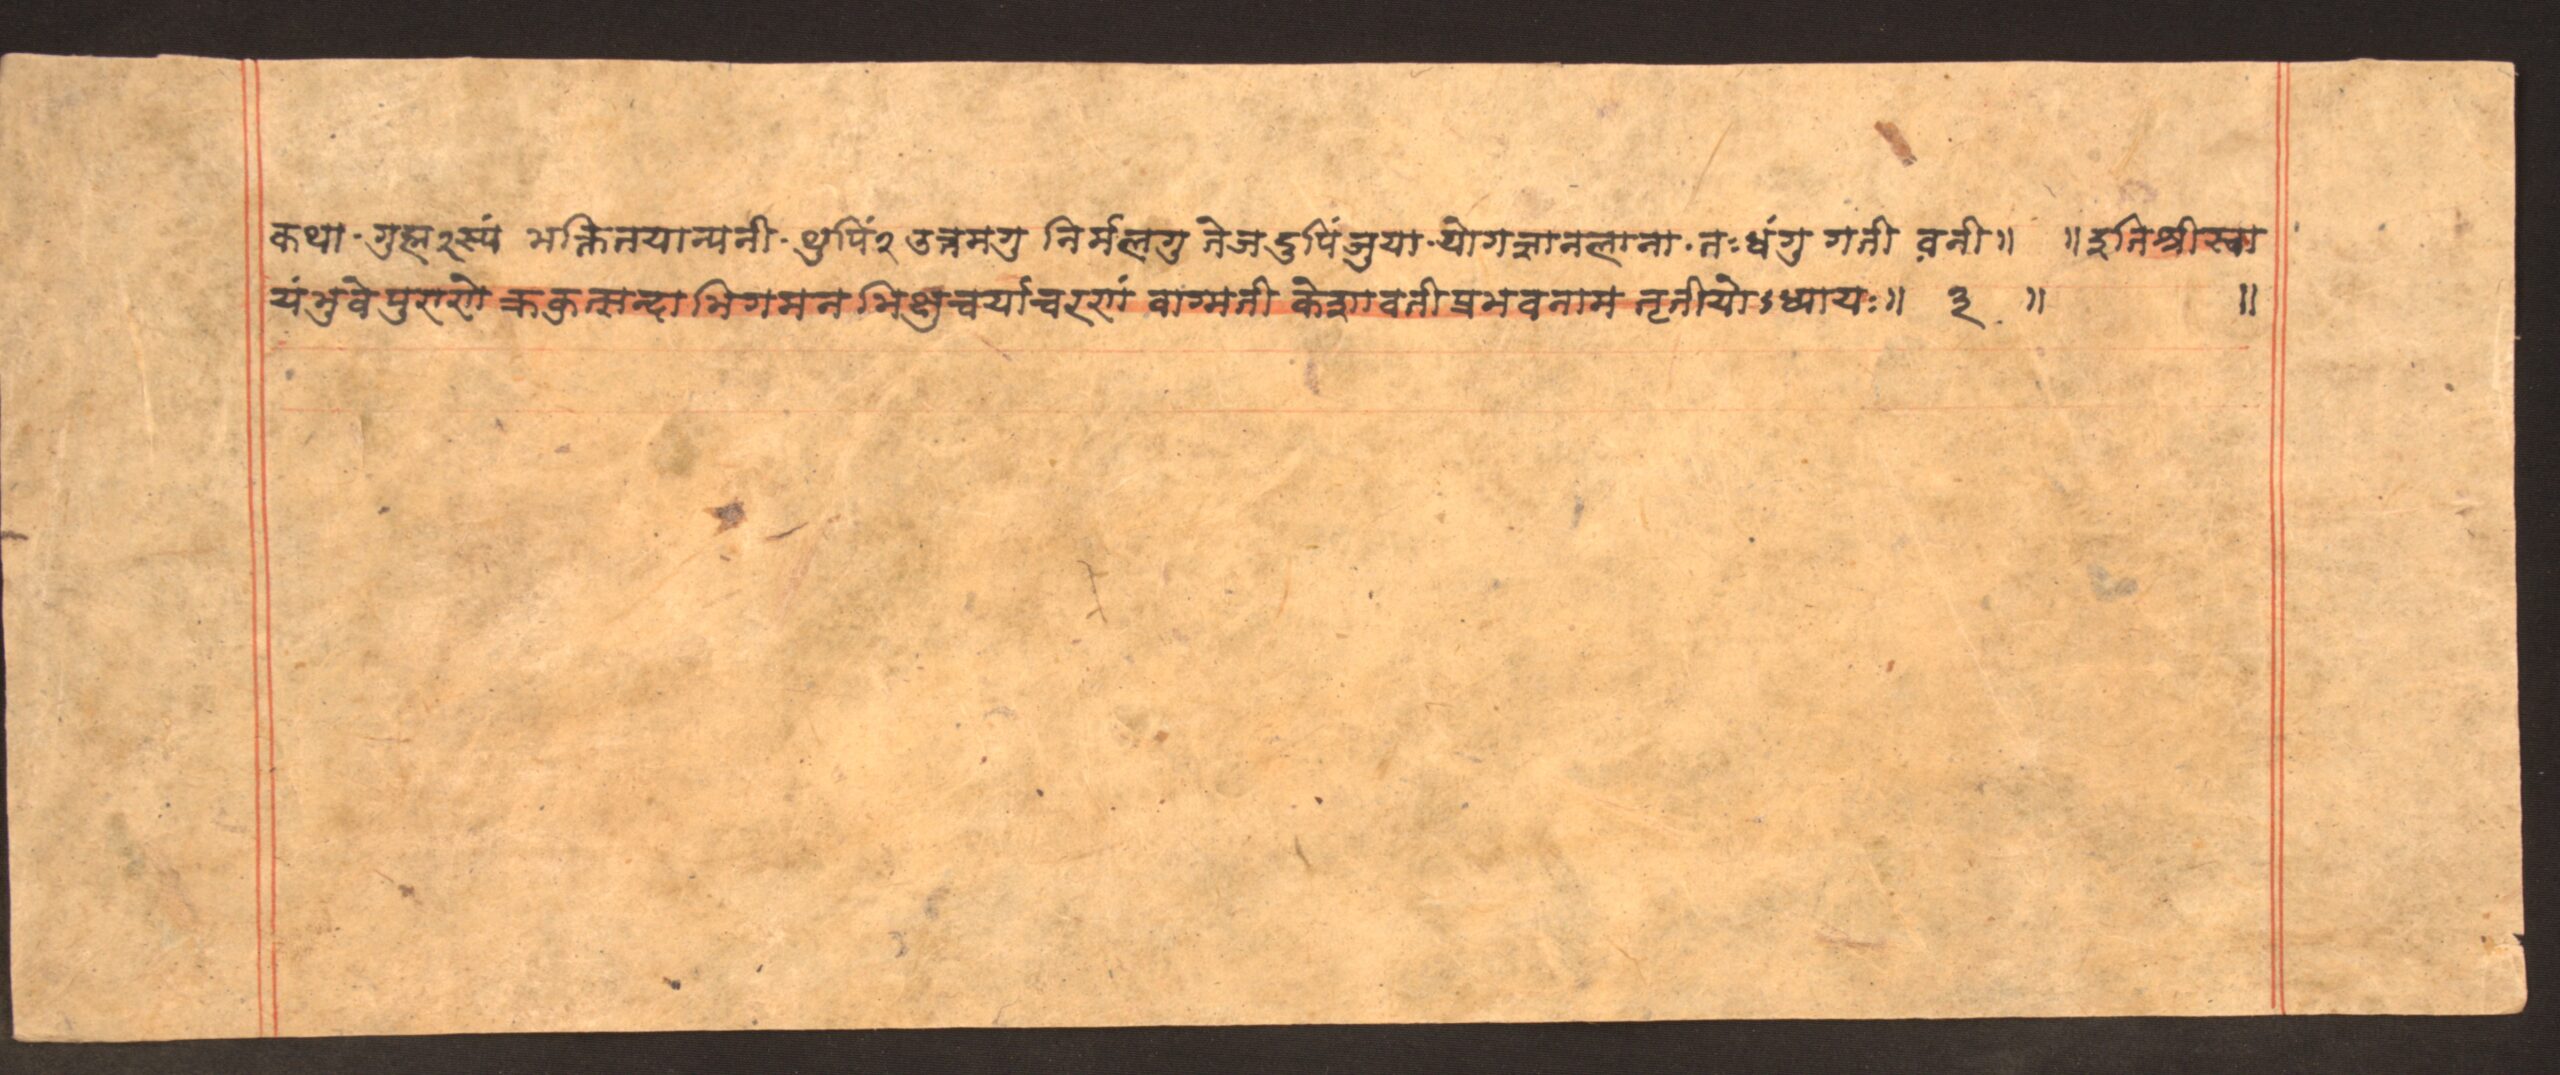 कथा · गुह्मरस्यं भक्तितयान्यनी · थुपिं२ उत्तमगु निर्मलगु तेजदुपिंजुया · योगज्ञानलाना · तःधंगु गती वनी॥ ॥इतिश्रीस्वा
यंभुवे पुराणे क्रकुत्सन्दाभिगमन भिक्षुचर्याचरणं वाग्मती केशावतीप्रभवनाम तृतीयोऽध्यायः॥ ३ ॥ ॥